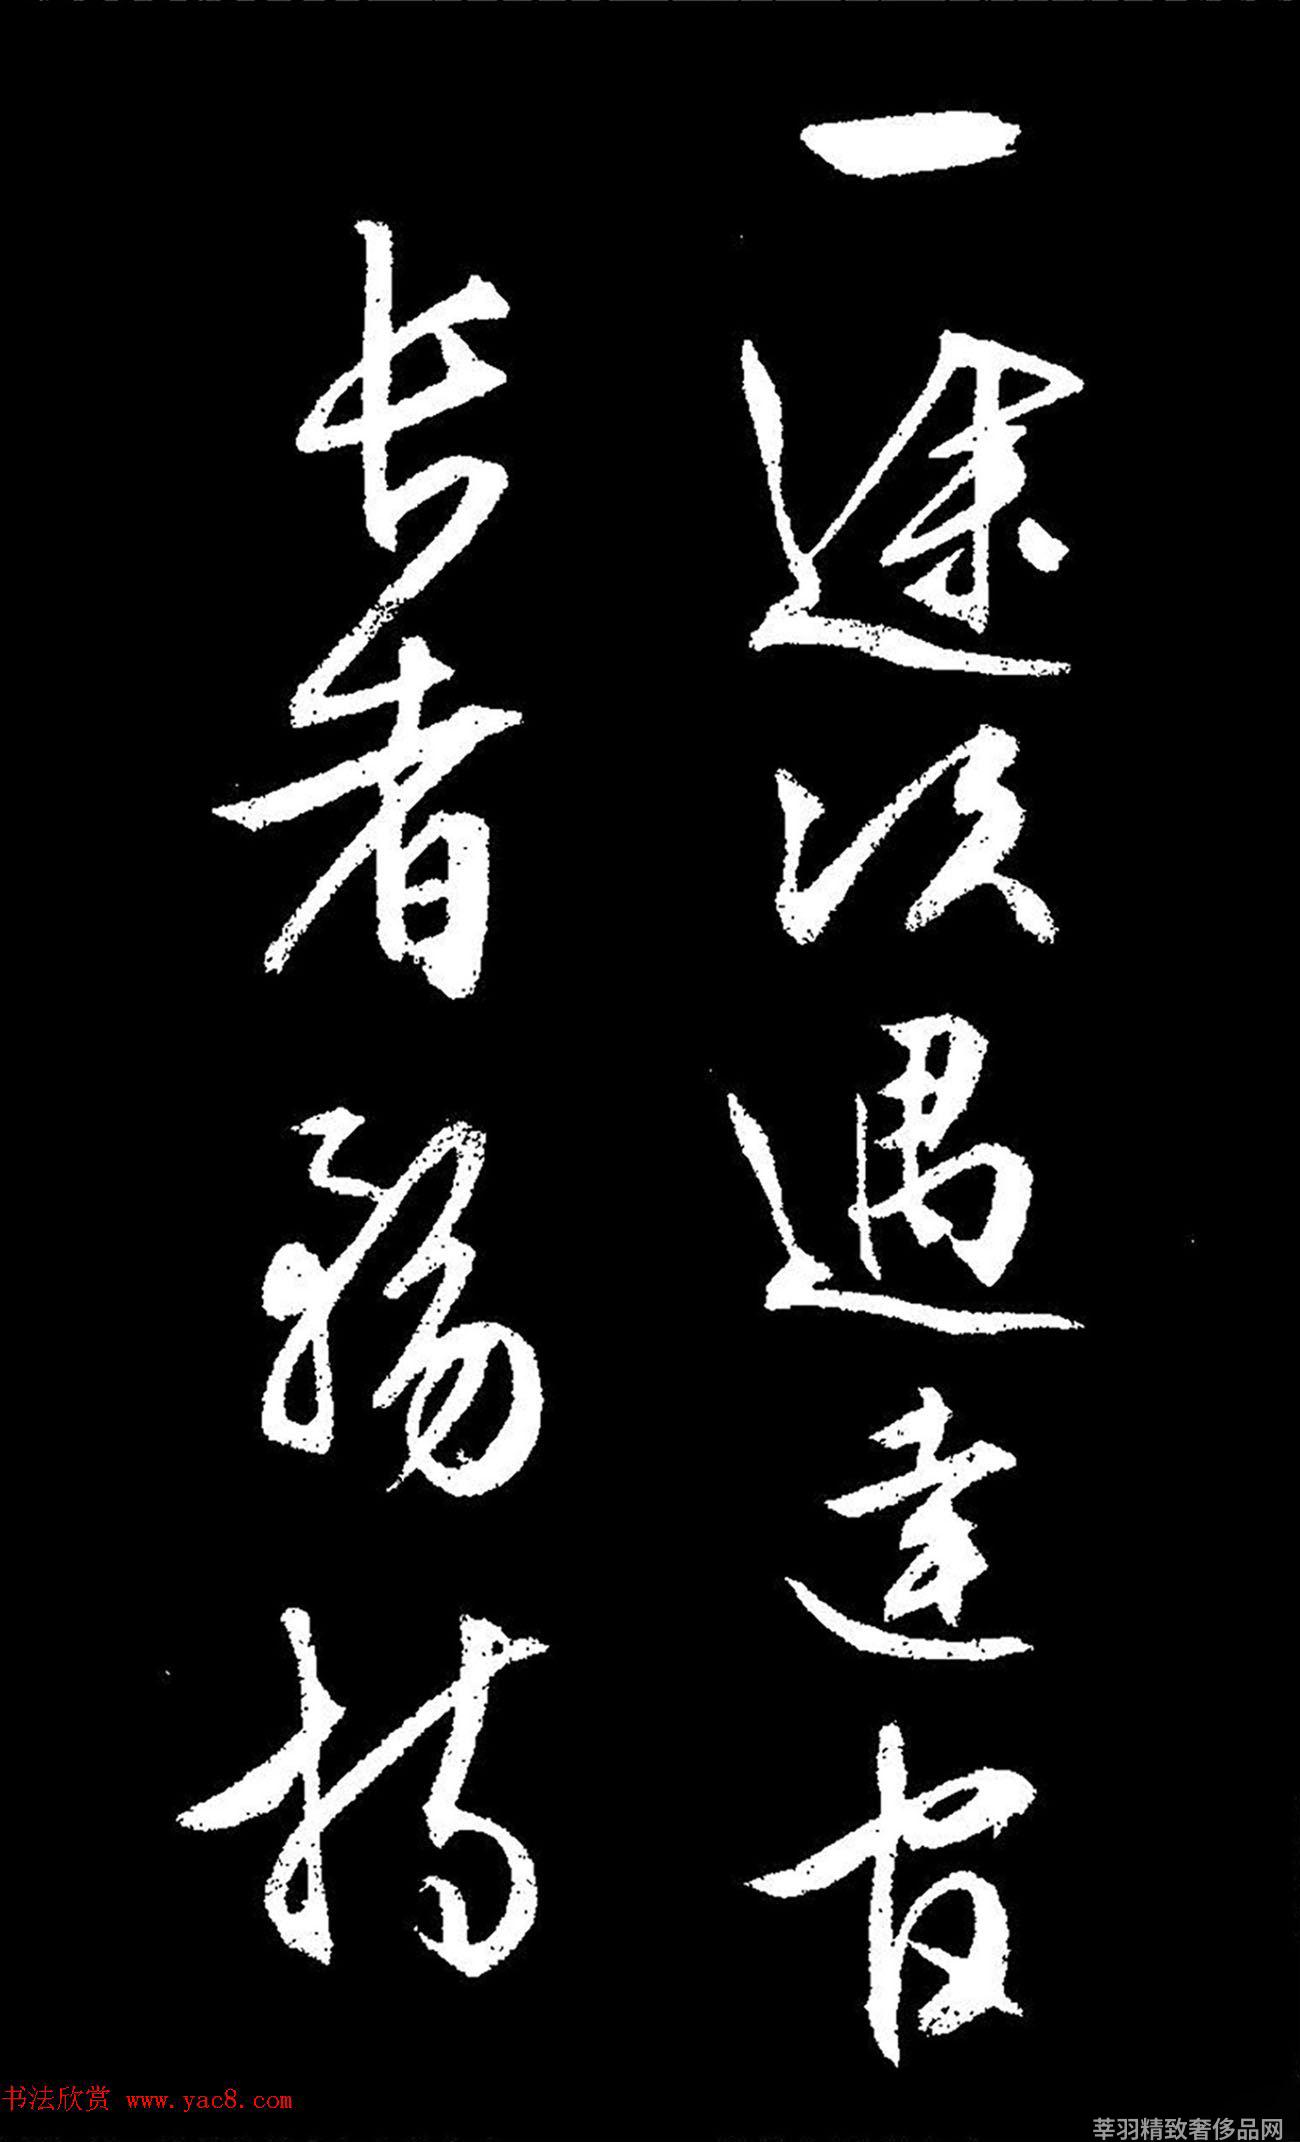 一途次遇達官
長者
书法欣赏 www.yac8.com
莘羽精致奢侈品网